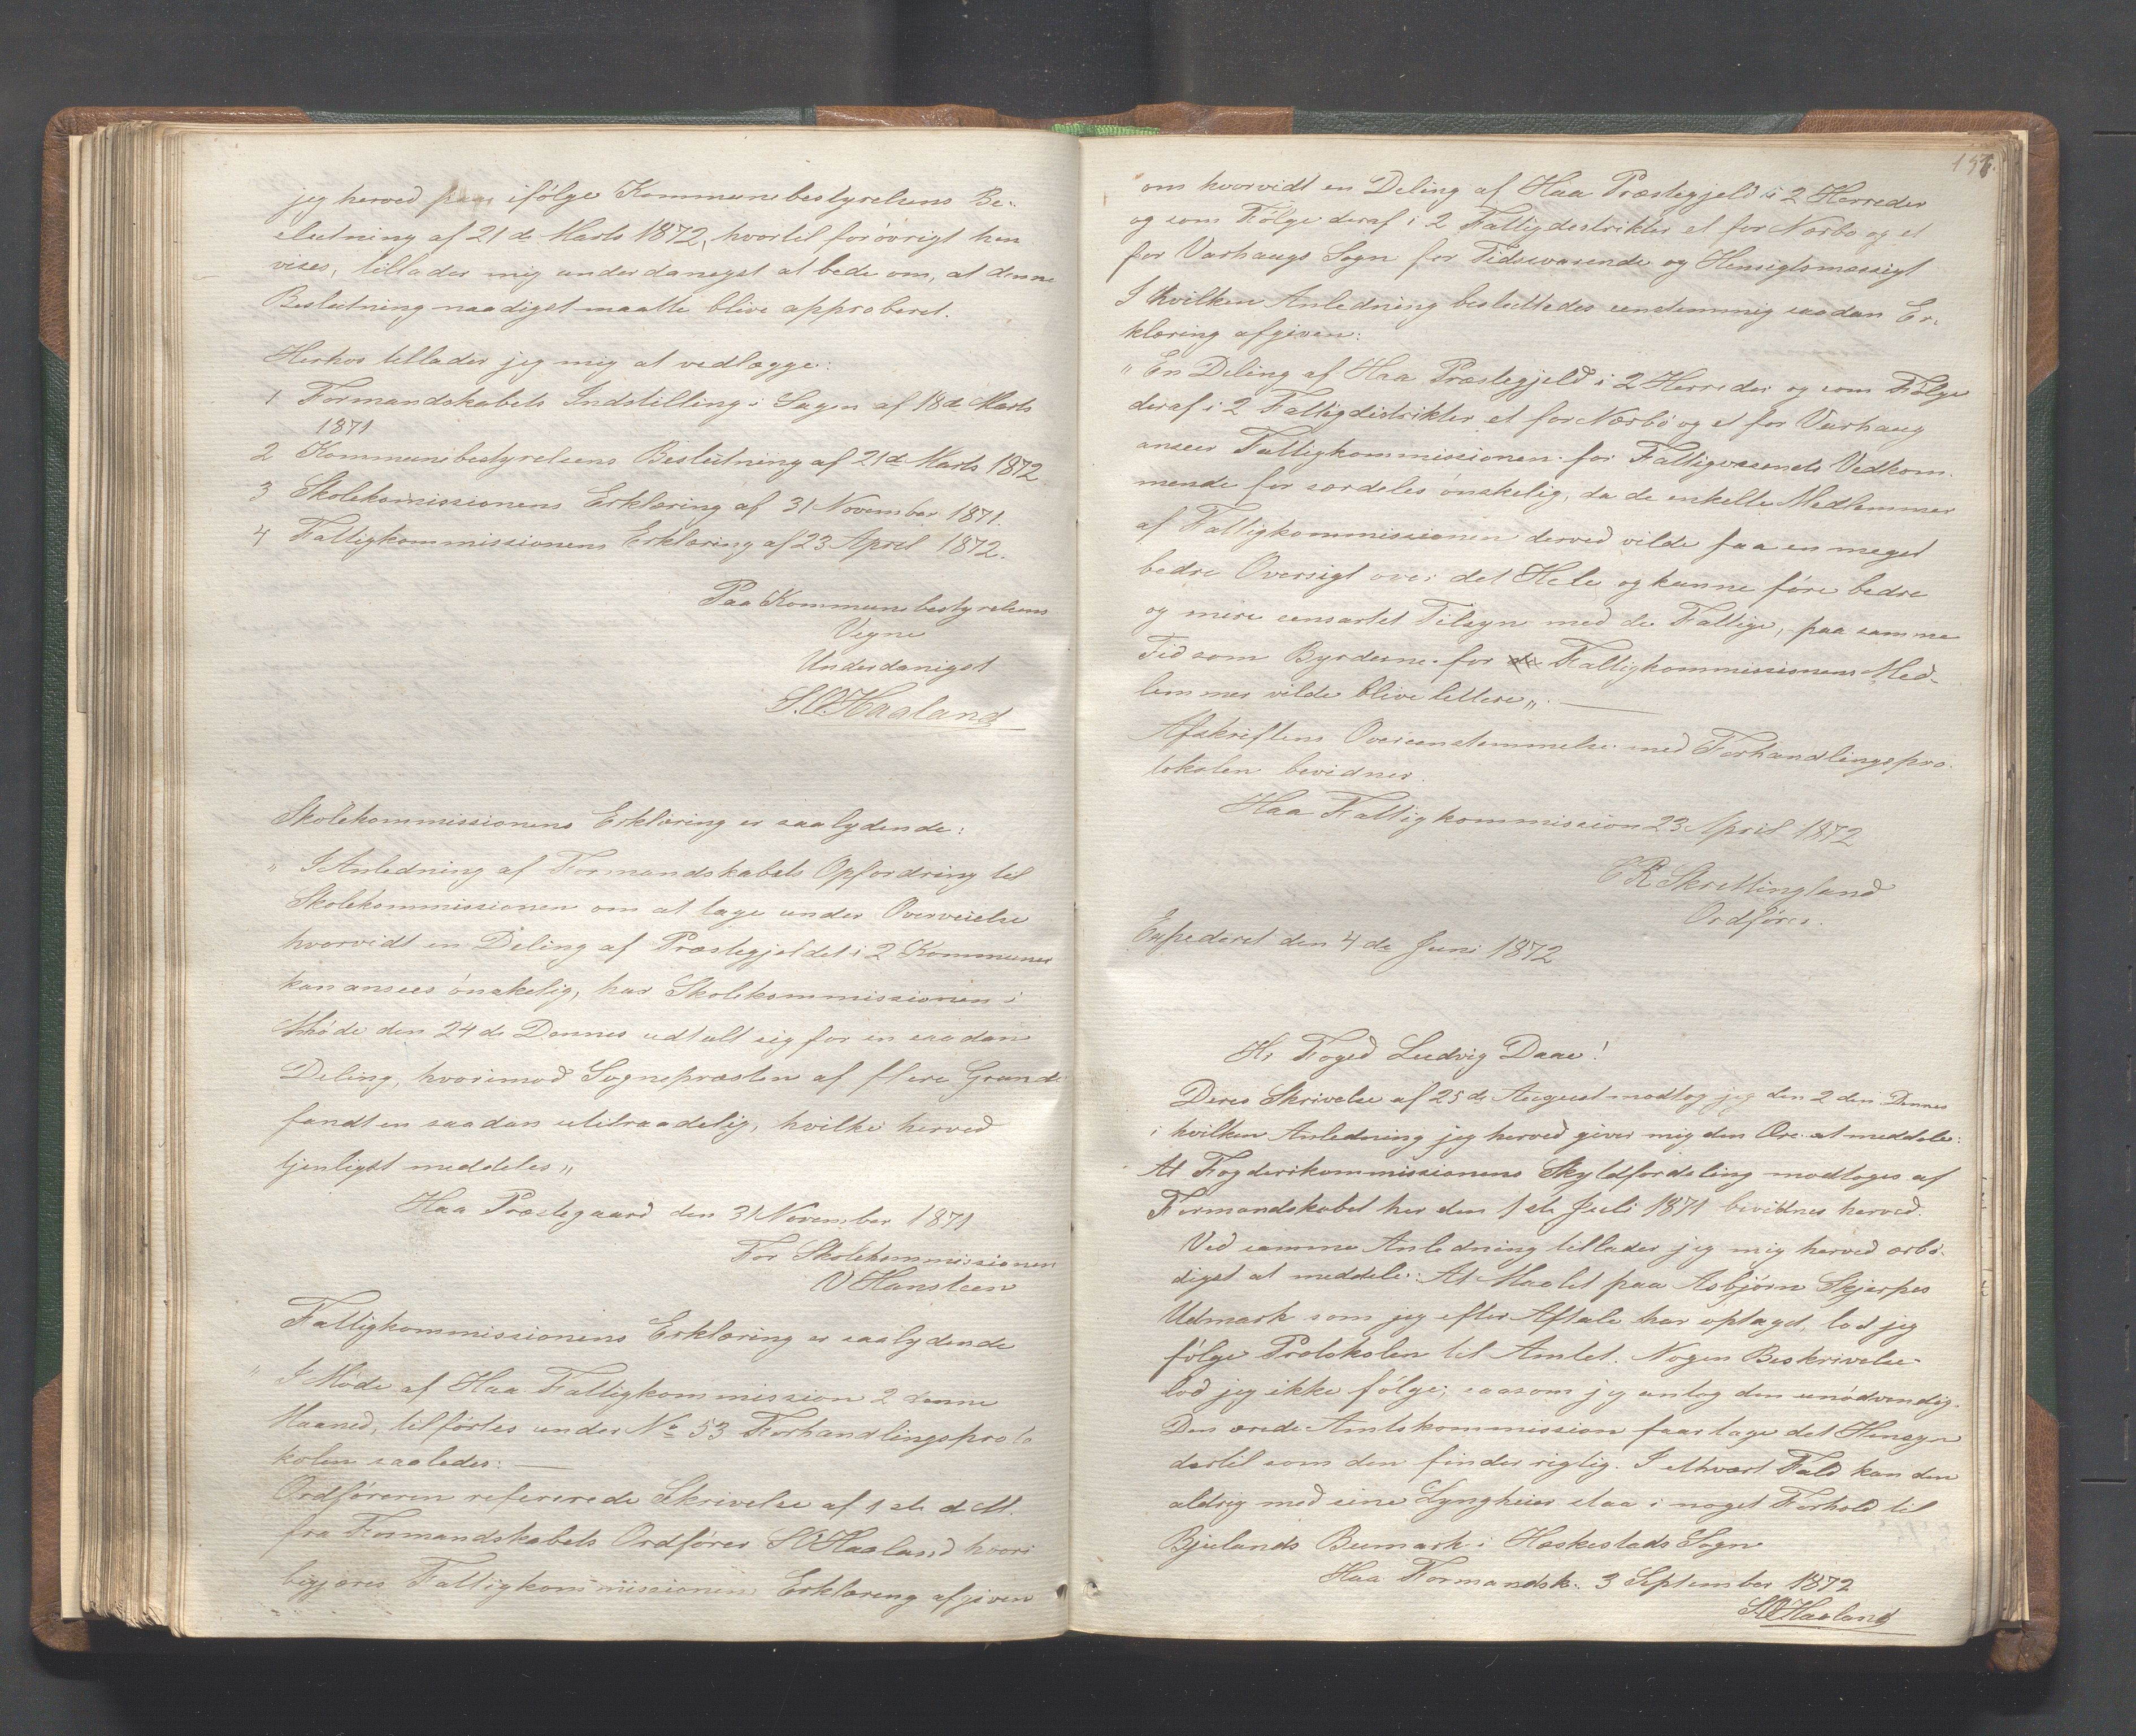 jeg herved ifölge Kommunebestyrelsens Be-
slutning af 21de Marts 1872, hvortil forövrigt hen
vises, tillader mig underdanigst at bede om, at denne
Beslutning naadigst maatte blive approberet.
Herhos tillader jeg mig at vedlægge:
1 Formandskabets Indstilling i Sagen af 18de Marts
1871
2 Kommunebestyrelsens Beslutning af 21de Marts 1872
3 Skolekomissionens Erklæring af 31 November 1871.
4 Fattigkommissionens Erklæring af 23 April 1872.
Paa Kommunebestyrelsens
Vegne
Underdanigst
S.O.Haaland
Skolekommissionens Erklæring er saalydende:
„ I Anledning af Formandskabets Opfordring til
Skolekommissionen om at tage under Overveielse
hvorvidt en Deling af Præstegjeldet i 2 Kommuner
kan ansees önskelig, har Skolekommissionen i
Möde den 24de Dennes udtalt sig for en saadan
Deling, hvorimod Sognepræsten af flere Grunde
fandt en saadan utilraadelig, hvilke herved
tjenligst meddeles„
Haa Præstegaard den 31 November 1871
For Skolekommissionen
V Hansteen
Fattigkommissionens Erklæring er saalydende
„ I Möde af Haa Fattigkommission 2 denne
Maaned, tilförtes under No 53 Forhandlingsproto
kolen saaledes: —
Ordföreren refererede Skrivelse af 1ste d.M.
fra Formandskabets Ordförer S O Haaland hvori
begjæres Fattigkommissionens Erklæring afgiven
157.
om hvorvidt en Deling af Haa Præstegjeld i 2 Herreder
og som Fölge deraf i 2 Fattigdestrikter et for Nærbö og et
for Varhaugs Sogn for Tidssvarende og Hensigtsmæssigt
I hvilken Anledning besluttedes eenstemmig saadan Er-
klæring afgiven:
„ En Deling af Haa Præstegjeld i 2 Herreder og som Fölge
deraf i 2 Fattigdistrikter et for Nærbö og et for Varhaug
ansees Fattigkommissionen for Fattigvæsenets Vedkom-
mende for særdeles önskelig, da de enkelte Medlemmer
af Fattigkommissionen derved vilde faa en meget
bedre Oversigt over det Hele og kunne före bedre
og mere eensartet Tilsyn med de Fattige, paa samme
Tid som Byrderne for de Fattigkommissionens Med-
lemmer vilde blive lettere„. —
Afskriftens Overeenstemmelse med Forhandlingspro-
tokolen bevidner.
Haa Fattigkommission 23 April 1872
C R Skrettingland
Ordförer.
Expederet den 4de Juni 1872
Hr Foged Ludvig Daae!
Deres Skrivelse af 25de August modtog jeg den 2den Dennes
i hvilken Anledning jeg herved giver mig den Ære at meddele:
At Fogderikommissionens Skyldfordeling modtoges af
Formandskabet her den 1ste Juli 1871 bevidnes herved.
Ved samme Anledning tillader jeg mig herved ærbö-
digst at meddele: At Maalet paa Asbjörn Skjerpes
Udmark som jeg efter Aftale har optaget, lod jeg
fölge Protokolen til Amtet. Nogen Beskrivelse
lod jeg ikke fölge, saasom jeg antog den unödvendig.
Den ærede Amtskommission faar tage det Hensyn
dertil som den finder rigtig. I ethvert Fald kan den
aldrig med sine Lyngheier staa i noget Forhold til
Bjulands Bumark i Heskestads Sogn
Haa Formandsk: 3 September 1872
S O Haaland